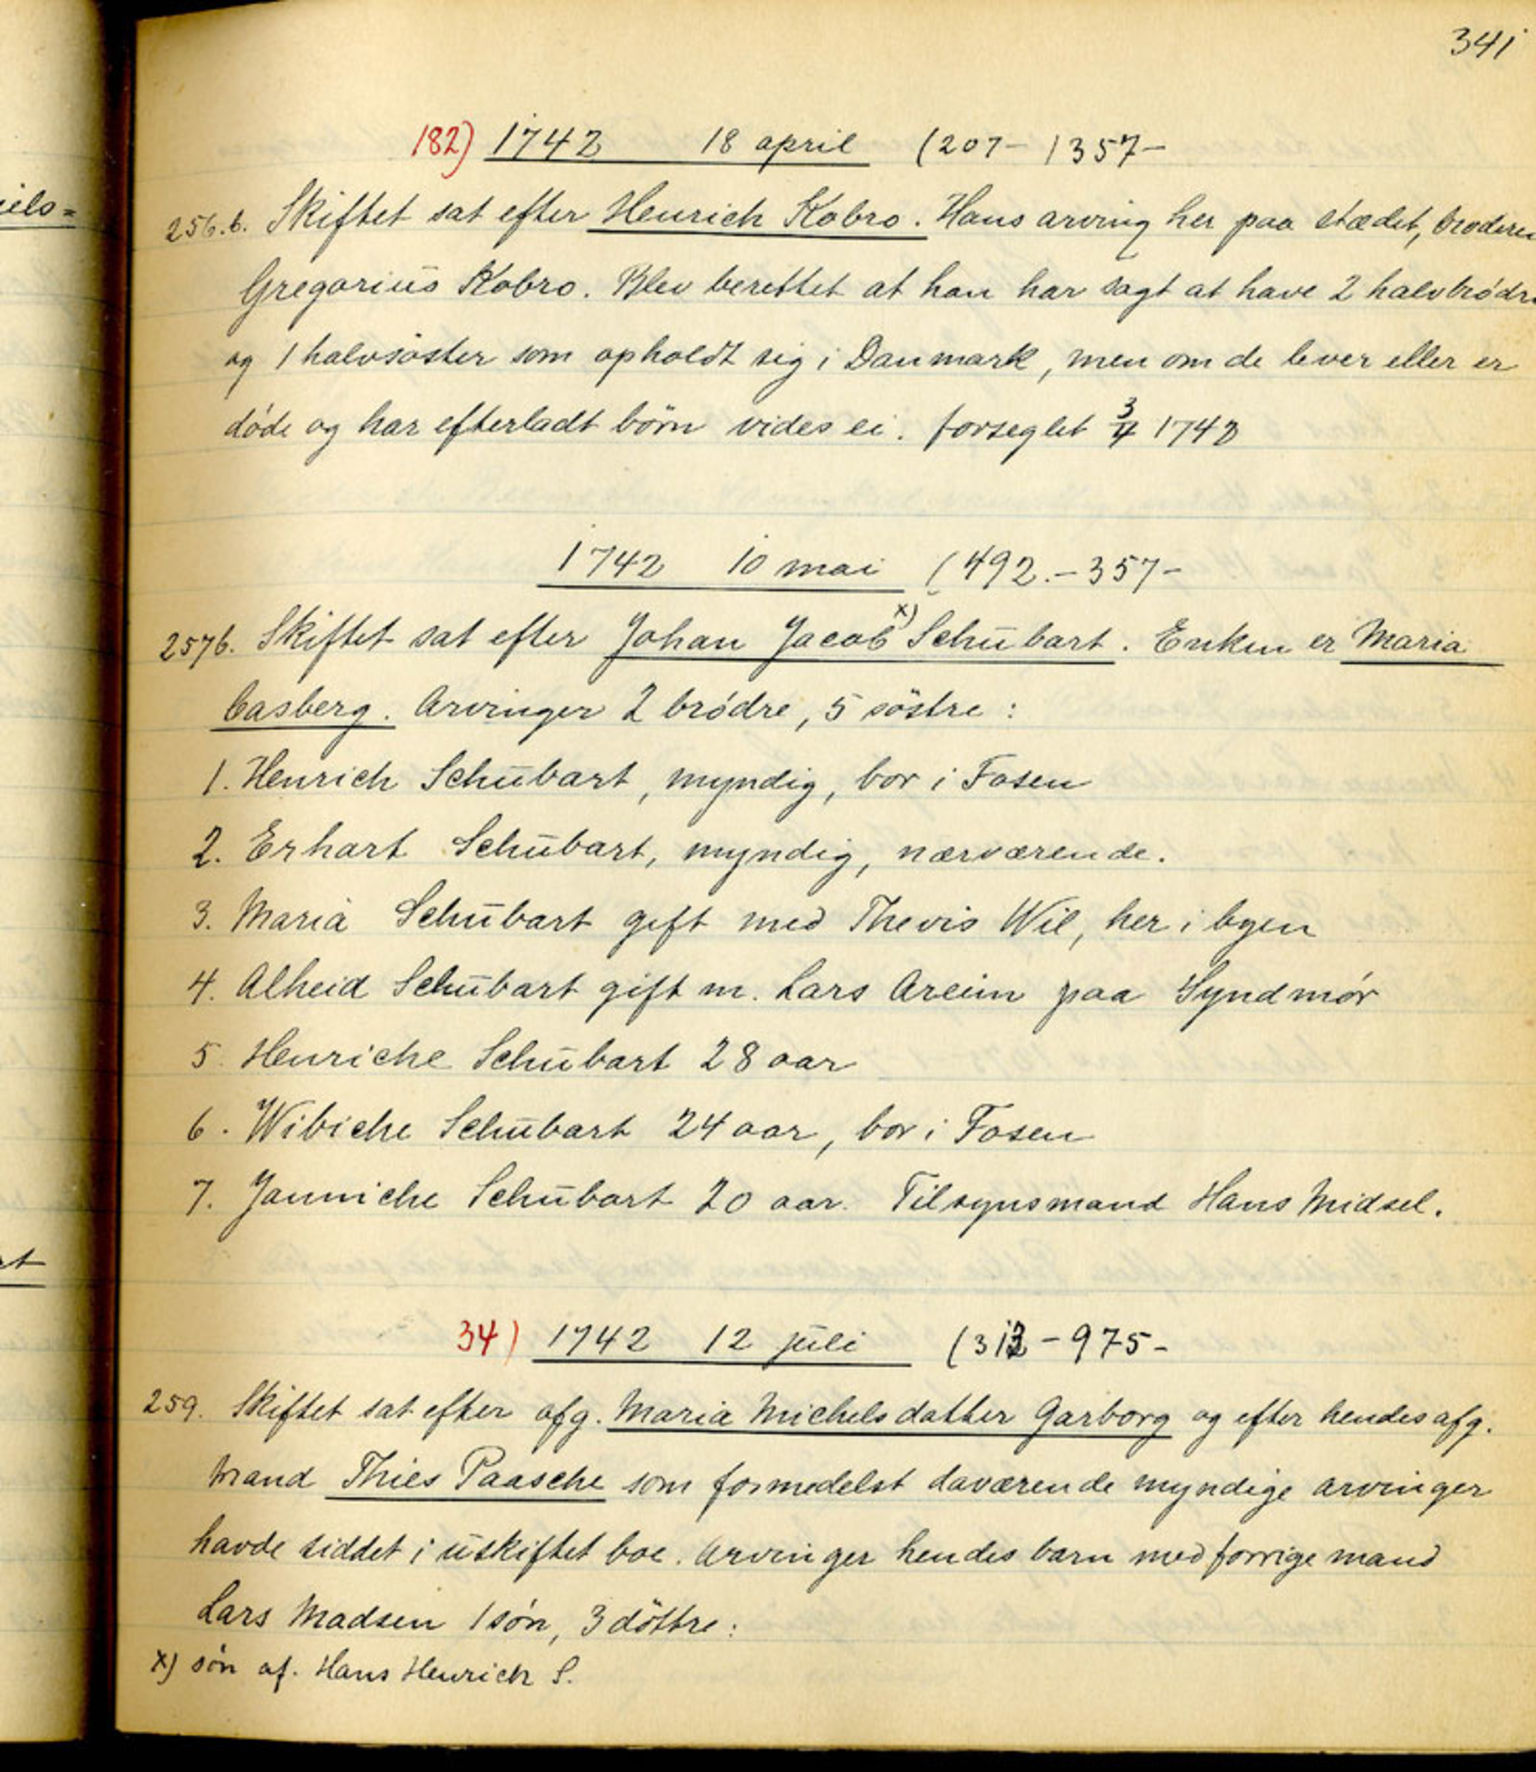 341
182) 1742 18 april (207- 1357-
256.b. Skiftet sat efter Henrich Kobro. Hans arving her paa stædet, broderen
Gregorius Kobro. Blev berettet at han har sagt at have 2 halvbrødre
og 1 halvsøster som opholdt sig i Danmark, men om de lever eller er
døde og har efterladt börn vides ei. forseglet 3/4 1742
1742 10 mai (492.-357-
257b. Skiftet sat efter Johan Jacob x) Schubart. Enken er Maria
Casberg. Arvinger 2 brødre, 5 söstre:
1. Henrich Schubart, myndig, bor i Fosen
2. Erhart Schubart, myndig, nærværende.
3. Maria Schubart gift med Thevis Wil, her i byen
4. Alheid Schubart gift m. Lars Areim paa Syndmør
5. Henriche Schubart 28 aar
6. Wibiche Schubart 24 aar, bor i Fosen
7. Janniche Schubart 20 aar. Tilsynsmand Hans Midsel.
34) 1742 12 juli (312-975-
259. Skiftet sat efter afg. Maria Michelsdatter Garborg og efter hendes afg.
Mand Thies Paasche som formedelst daværende myndige arvinger
havde siddet i uskiftet boe. Arvinger hendes barn med forrige mand
Lars Madsen 1 søn, 3 döttre:
x) søn af. Hans Henrich S.
iels=
rt